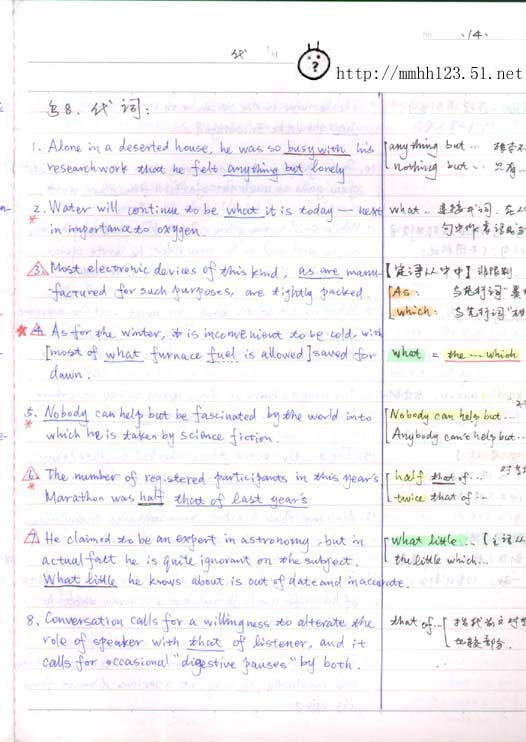 ·14·
代词
http://mmhh123.51.net
8. 代词:
1. Alone in a deserted house, he was so busy with his
research work that he felt anything but lonely
anything but ...
nothing but ... 只有..
2. Water will continue to be what it is today — next
in importance to oxygen.
what .. 连接代词. 在从
句中作主语或
3. Most electronic devies of this kind, as are manu-
factured for such purposes, are tightly packed.
【定语从句中】非限制
As: 当先行词"
which: 当先行词"
4. As for the winter, it is inconvenient to be cold, with
[most of what furnace fuel is allowed] saved for
dawn.
what = the ... which
5. Nobody can help but be fascinated by the world into
which he is taken by science fiction.
Nobody can help but...
Anybody can't help but...
6. The number of registered participants in this year's
Marathon was half that of last year's
half that of...
twice that of...
7. He claimed to be an expert in astronomy, but in
actual fact he is quite ignorant on the subject.
What little he knows about is out of date and inaccurate.
what little ... 【主语从
the little which...
8. Conversation calls for a willingness to alterate the
role of speaker with that of listener, and it
calls for occasional "digestive pauses" by both.
that of...
比较部分.